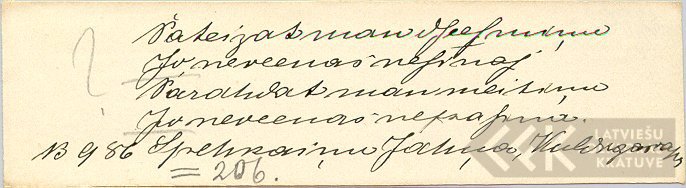 Pateizat man dseesmiņu
Jo neveenas nesinaj
Parahdat man meitiņu
Jo neveenas nepasinu.
? B 986 Spehkaiņu Jahņa, Kuldigā
= 206.
LATVIEŠU
KRĀTUVE